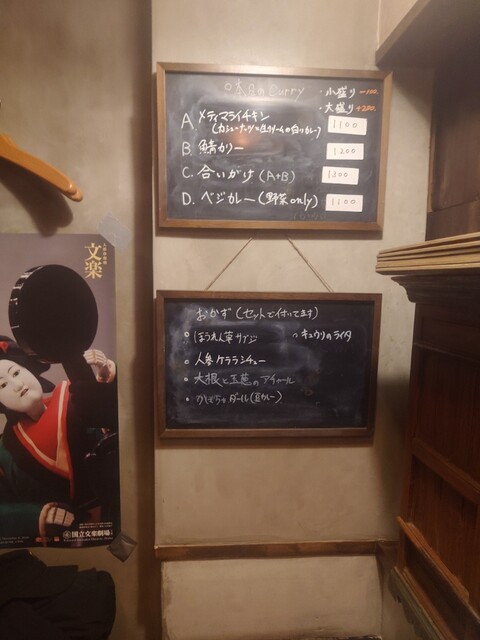 本日のCurry
・小盛り -100.
・大盛り +200.
A. メティマライチキン
(カシューナッツと生クリームの白いカレー) 1100
B. 鯖カリー 1200
C. 合いがけ (A+B) 1300
D. ベジカレー (野菜only) 1100
おかず (セットで付いてます)
○ ほうれん草サブジ
○ キュウリのライタ
○ 人参ケララシチュー
• 大根と玉葱のアチャール
• ダール(豆カレー)
人形浄瑠璃
文楽
国立文楽劇場